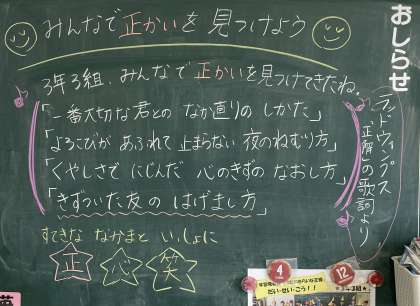 みんなで正かいを見つけよう
おしらせ
3年3組、みんなで正かいを見つけてきたね。
「一番大切な君との なか直りの しかた」
「よろこびが あふれて 止まらない 夜のねむり方」
「くやしさで にじんだ 心のきずの なおし方」
「きずついた友の はげまし方」
ラッドウィンプス
「正解」の歌詞より
すてきな なかまと いっしょに
正 心 笑
4
12
だい・せい・こう!!